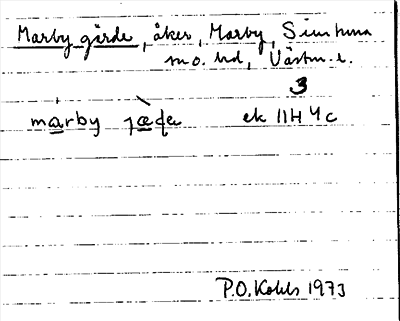 Marby gärde, åker, Marby, Simtuna
sn o. hd, Västm. l.
3
marby jæḍe ek 11H 4c
P.O. Kohls 1973